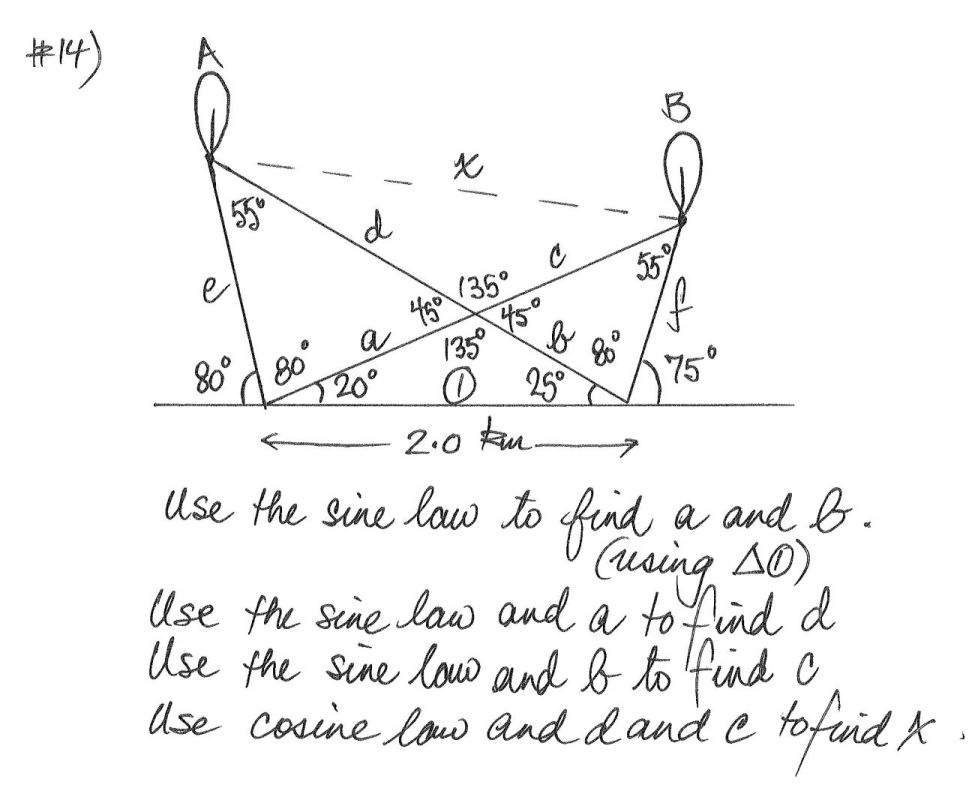 #14)
A
B
x
55°
d
c
55°
e
135°
45°
45°
f
a
135°
b
80°
80°
80°
20°
①
25°
75°
2.0 km
Use the sine law to find a and b.
(using △①)
Use the sine law and a to find d
Use the sine law and b to find c
Use cosine law and d and c to find x.